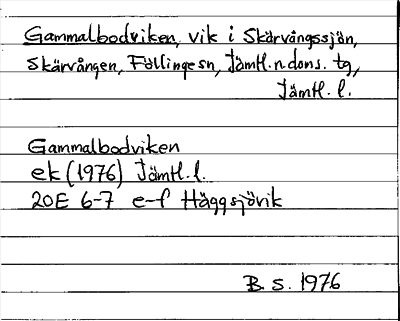 Gammalbodviken, vik i Skärvångssjön,
Skärvången, Föllinge sn, Jämtl. n. doms. tg,
Jämtl. l.
Gammalbodviken
ek (1976) Jämtl. l.
20E 6-7 e-f Häggsjövik
B. S. 1976